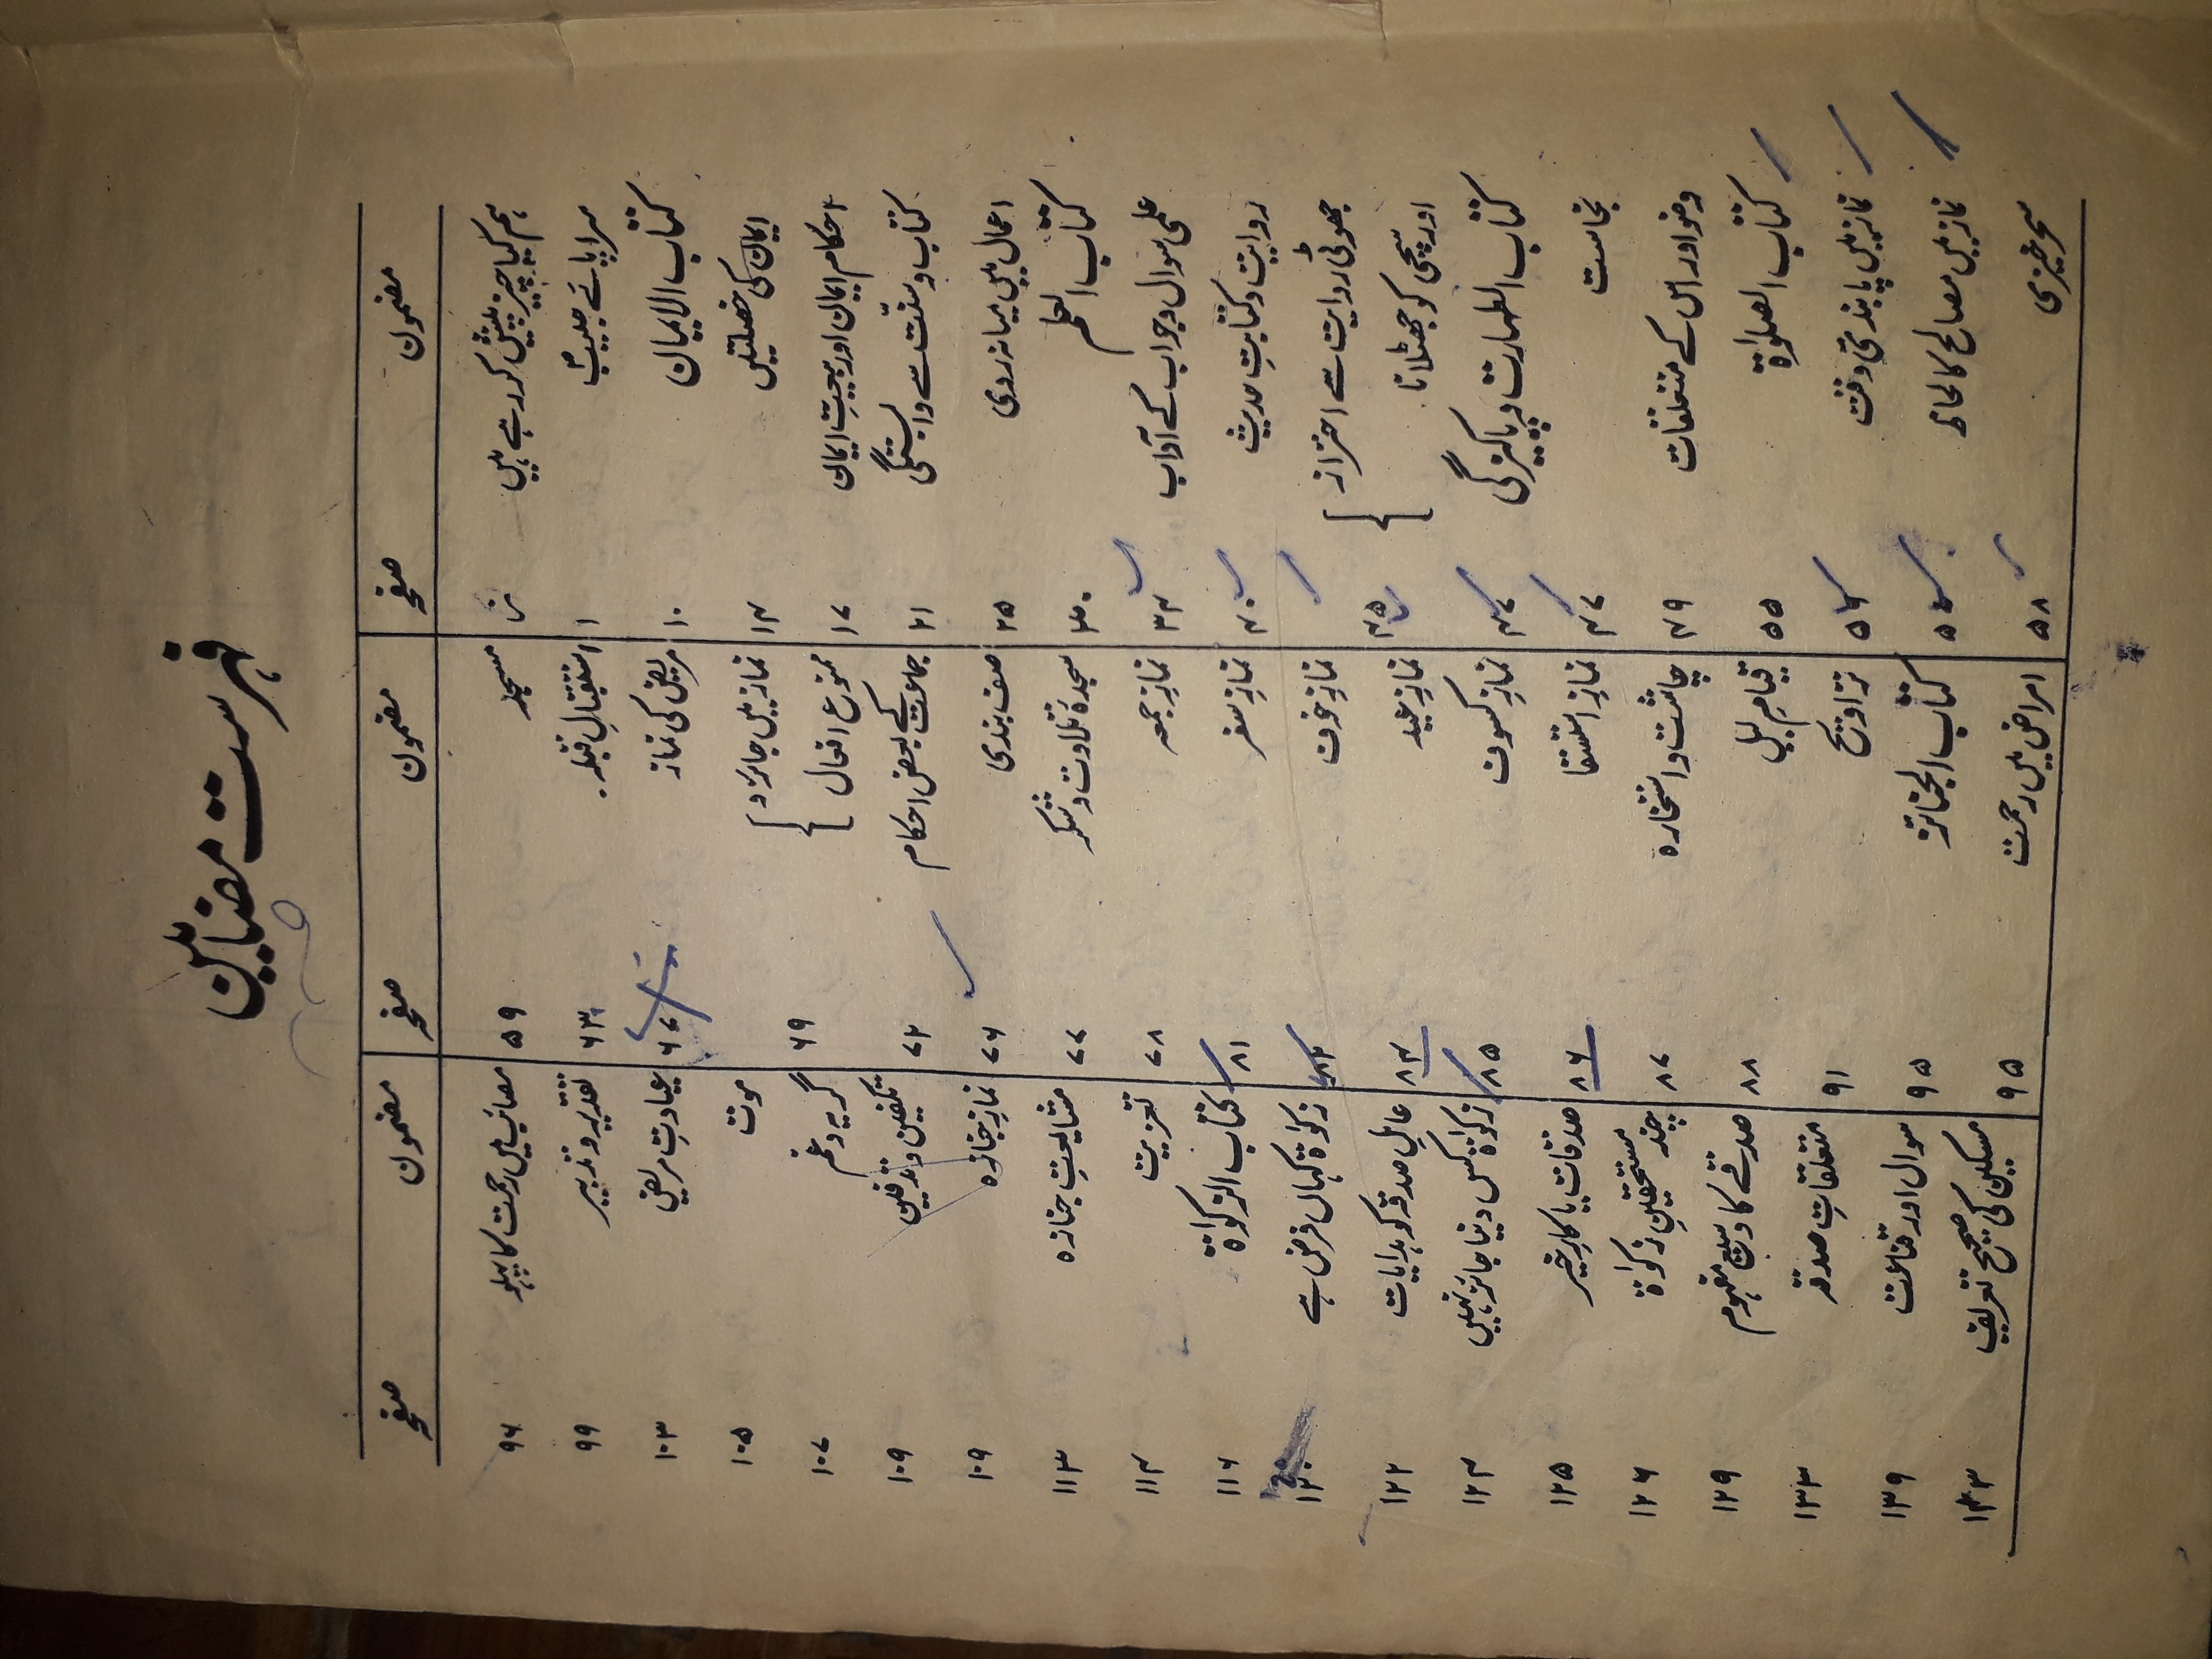 فہرست مضامین
مضمون صفحہ
ہم کیا چیز پیش کر رہے ہیں
سراپائے حبیبؐ ۱
کتاب الایمان ۱۰
ایمان کی خصلتیں ۱۴
احکام ایمان اور بیعتِ ایمان ۱۷
کتاب و سنّت سے وابستگی ۲۱
اعمال میں میانہ روی ۲۵
کتاب العلم ۳۰
علمی سوال و جواب کے آداب ۳۴
روایت و کتابتِ حدیث ۴۰
جھوٹی روایت سے احتراز
اور سچی کو جھٹلانا ۴۵
کتاب الطہارت و پاکیزگی ۴۷
نجاست ۴۷
وضو اور اس کے متعلقات ۴۹
کتاب الصلوٰۃ ۵۵
نماز میں پابندیٔ وقت ۵۶
نماز میں مصالح کا لحاظ
سحر خیزی ۵۸
مضمون صفحہ
مسجد ۵۹
استقبالِ قبلہ ۶۳
مریض کی نماز ۶۷
نماز میں جائز و
ممنوع افعال ۶۹
جماعت کے بعض احکام ۷۲
صف بندی ۷۶
سجدۂ تلاوت و شکر ۷۷
نمازِ جمعہ ۷۸
نمازِ سفر ۸۱
نمازِ خوف ۸۲
نمازِ عید ۸۴
نمازِ کسوف ۸۵
نمازِ استسقا ۸۶
چاشت و استخارہ ۸۷
قیامِ لیل ۸۸
تراویح ۹۱
کتاب الجنائز ۹۵
امراض میں رحمت ۹۵
مضمون صفحہ
مصائب میں رحمت کا پہلو ۹۶
تقدیر و تدبیر ۹۹
عیادتِ مریض ۱۰۳
موت ۱۰۵
گریہ و غم ۱۰۷
تکفین و تدفین ۱۰۹
نمازِ جنازہ ۱۰۹
مشایعتِ جنازہ ۱۱۳
تعزیت ۱۱۴
کتاب الزکوٰۃ ۱۱۶
زکوٰۃ کہاں فرض ہے ۱۲۰
عاملِ صدقہ کو ہدایات ۱۲۲
زکوٰۃ کسے دینا جائز نہیں ۱۲۴
صدقات یا کارِ خیر ۱۲۵
چند مستحقینِ زکوٰۃ ۱۲۶
صدقے کا وسیع مفہوم ۱۲۹
متعلقاتِ صدقہ ۱۳۳
سوال اور قناعت ۱۳۹
مسکین کی صحیح تعریف ۱۴۳